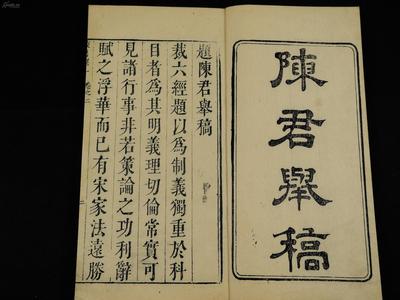 陳君舉稿
題陳君舉稿
裁六經題以為制義獨重於科
目者為其明義理切倫常實可
見諸行事非若策論之功利辭
賦之浮華而已有宋家法遠勝